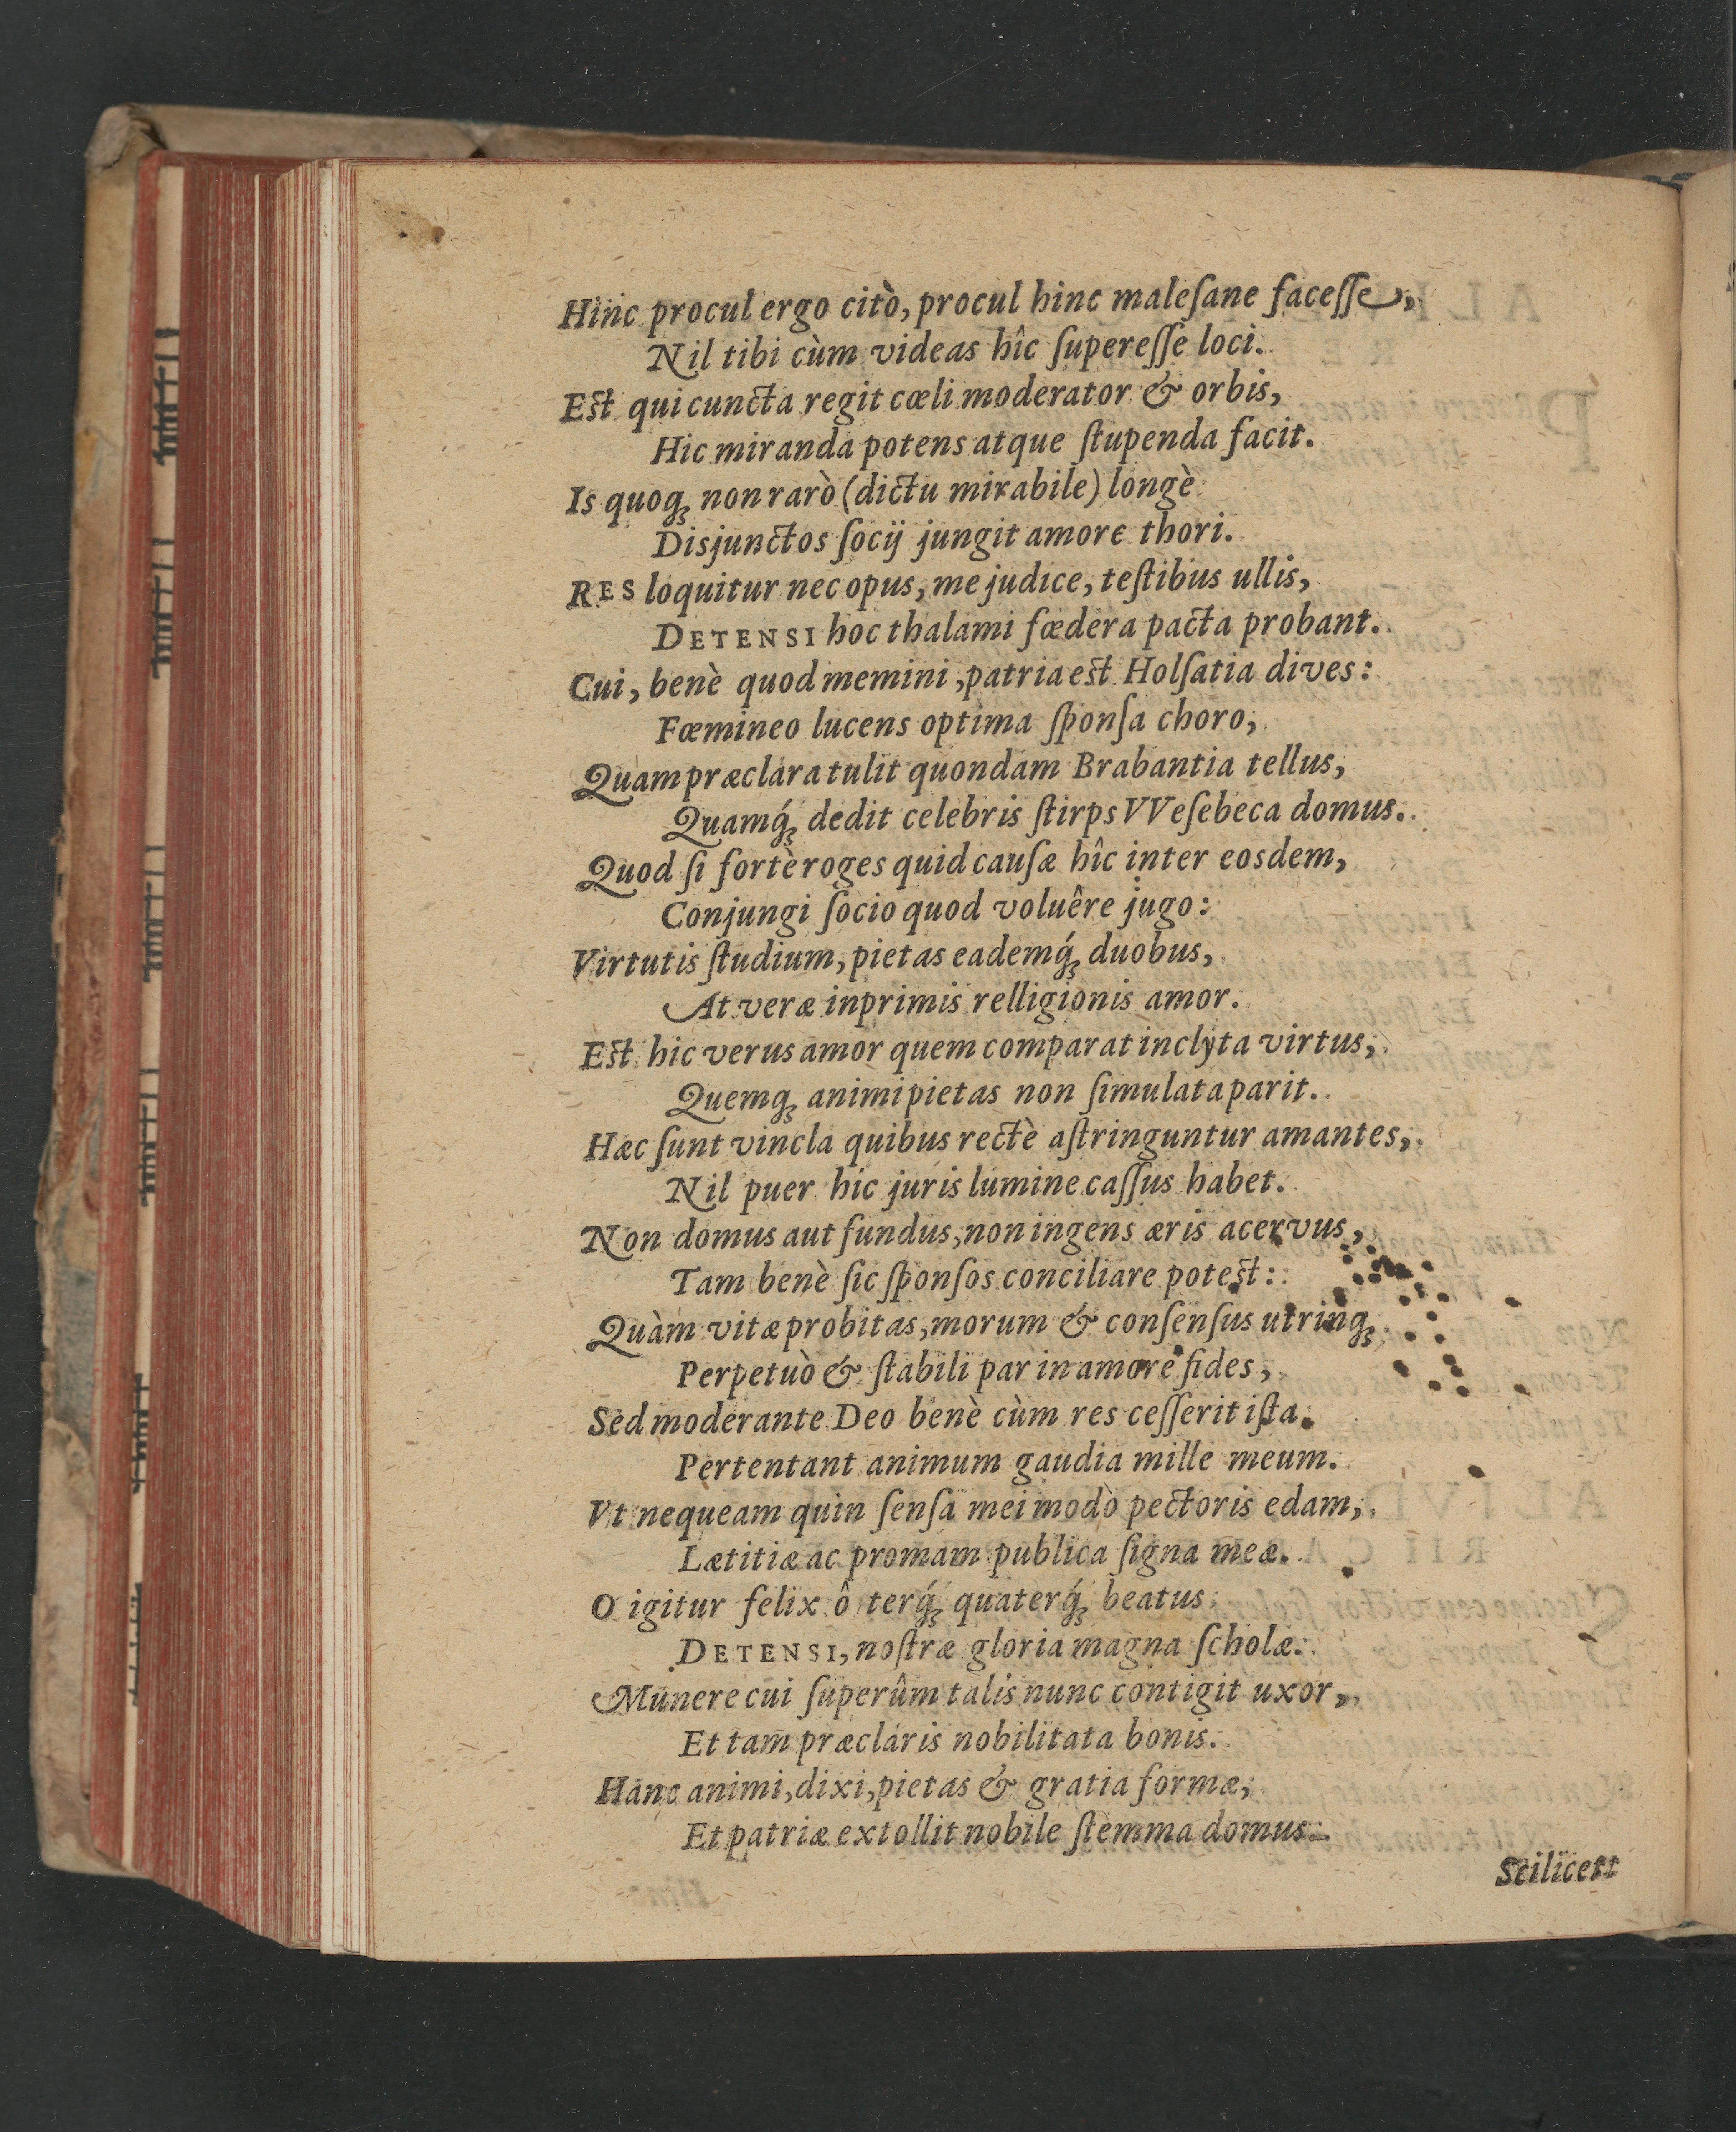 Hinc procul ergo citò, procul hinc maleſane faceſſe,
Nil tibi cùm videas hîc ſupereſſe loci.
Eſt qui cuncta regit cœli moderator & orbis,
Hic miranda potens atque ſtupenda facit.
Is quoqꝫ non rarò (dictu mirabile) longè
Disjunctos ſocij jungit amore thori.
RES loquitur nec opus, me judice, teſtibus ullis,
DETENSI hoc thalami fœdera pacta probant.
Cui, benè quod memini, patria eſt Holſatia dives:
Fœmineo lucens optima ſponſa choro,
Quam præclara tulit quondam Brabantia tellus,
Quamq́ꝫ dedit celebris ſtirps VVeſebeca domus.
Quod ſi fortè roges quid cauſæ hîc inter eosdem,
Conjungi ſocio quod voluêre jugo:
Virtutis ſtudium, pietas eademq́ꝫ duobus,
At veræ inprimis relligionis amor.
Eſt hic verus amor quem comparat inclyta virtus,
Quemqꝫ animi pietas non ſimulata parit.
Hæc ſunt vincla quibus rectè aſtringuntur amantes,
Nil puer hic juris lumine caſſus habet.
Non domus aut fundus, non ingens æris acervus,
Tam benè ſic ſponſos conciliare poteſt:
Quàm vitæ probitas, morum & conſenſus utrinqꝫ
Perpetuò & ſtabili par in amore fides,
Sed moderante Deo benè cùm res ceſſerit iſta.
Pertentant animum gaudia mille meum.
Vt nequeam quin ſenſa mei modò pectoris edam,
Lætitiæ ac promam publica ſigna meæ.
O igitur felix ô terq́ꝫ quaterq́ꝫ beatus
DETENSI, noſtræ gloria magna ſcholæ.
Munere cui ſuperûm talis nunc contigit uxor,
Et tam præclaris nobilitata bonis.
Hanc animi, dixi, pietas & gratia formæ,
Et patriæ extollit nobile ſtemma domus.
Scilicett